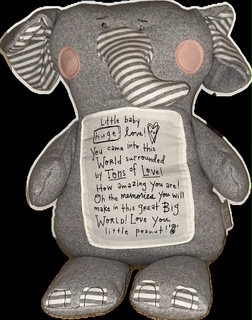 Little baby
huge love!
You came into this
World surrounded
by Tons of Love!
How amazing you are!
Oh the memories you will
make in this great Big
World! Love you
little peanut!